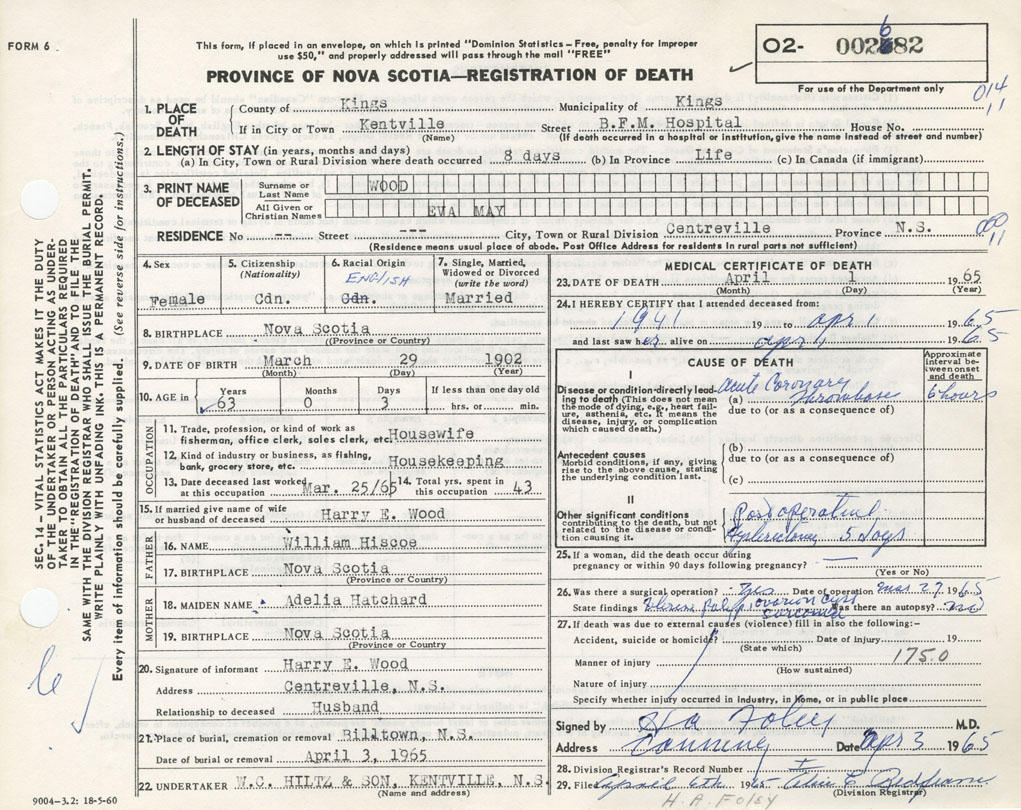 FORM 6
This form, if placed in an envelope, on which is printed "Dominion Statistics – Free, penalty for improper
use $50," and properly addressed will pass through the mail "FREE"
O2- 002682
PROVINCE OF NOVA SCOTIA—REGISTRATION OF DEATH
For use of the Department only
014
11
1. PLACE OF DEATH
County of Kings Municipality of Kings
If in City or Town Kentville Street B.F.M. Hospital House No.
(Name) (If death occurred in a hospital or institution, give the name instead of street and number)
2. LENGTH OF STAY (in years, months and days)
(a) In City, Town or Rural Division where death occurred 8 days (b) In Province Life (c) In Canada (if immigrant)
3. PRINT NAME OF DECEASED
Surname or Last Name WOOD
All Given or Christian Names EVA MAY
RESIDENCE No -- Street --- City, Town or Rural Division Centreville Province N.S.
(Residence means usual place of abode. Post Office Address for residents in rural parts not sufficient)
11
4. Sex Female
5. Citizenship (Nationality) Cdn.
6. Racial Origin ENGLISH Cdn.
7. Single, Married, Widowed or Divorced (write the word) Married
8. BIRTHPLACE Nova Scotia
((Province or Country)
9. DATE OF BIRTH March 29 1902
(Month) (Day) (Year)
10. AGE in Years 63 Months 0 Days 3 If less than one day old hrs. or min.
OCCUPATION
11. Trade, profession, or kind of work as
fisherman, office clerk, sales clerk, etc. Housewife
12. Kind of industry or business, as fishing,
bank, grocery store, etc. Housekeeping
13. Date deceased last worked at this occupation Mar. 25/65 14. Total yrs. spent in this occupation 43
15. If married give name of wife
or husband of deceased Harry E. Wood
FATHER
16. NAME William Hiscoe
17. BIRTHPLACE Nova Scotia
(Province or Country)
MOTHER
18. MAIDEN NAME Adelia Hatchard
19. BIRTHPLACE Nova Scotia
(Province or Country
20. Signature of informant Harry E. Wood
Address Centreville, N.S.
Relationship to deceased Husband
21. Place of burial, cremation or removal Billtown, N.S.
Date of burial or removal April 3, 1965
22. UNDERTAKER W.C. HILTZ & SON, KENTVILLE, N.S.
(Name and address)
9004-3.2: 18-5-60
MEDICAL CERTIFICATE OF DEATH
23. DATE OF DEATH April 1 1965
(Month) (Day) (Year)
24. I HEREBY CERTIFY that I attended deceased from:
1941 19 to Apr 1 1965
and last saw her alive on Apr 1 1965
CAUSE OF DEATH
Approximate interval between onset and death
I
Disease or condition directly leading to death (This does not mean
the mode of dying, e.g., heart failure, asthenia, etc. It means the
disease, injury, or complication
which caused death.)
(a) Acute Coronary Thrombosis 6 hours
due to (or as a consequence of)
Antecedent causes
Morbid conditions, if any, giving
rise to the above cause, stating
the underlying condition last.
(b)
due to (or as a consequence of)
(c)
II
Other significant conditions
contributing to the death, but not
related to the disease or condition causing it.
Postoperative
Hysterectomy 5 days
25. If a woman, did the death occur during
pregnancy or within 90 days following pregnancy?
(Yes or No)
26. Was there a surgical operation? Yes Date of operation Mar 27 1965
State findings Uterine polyp ovarian cyst Was there an autopsy? no
27. If death was due to external causes (violence) fill in also the following:–
Accident, suicide or homicide? Date of injury 19
(State which)
Manner of injury 175.0
(How sustained)
Nature of injury
Specify whether injury occurred in Industry, in Home, or in public place
Signed by Foley M.D.
Address Canning Date Apr 3 1965
28. Division Registrar's Record Number
29. Filed April 6th 1965
(Division Registrar)
H. A. FOLEY
SEC. 14 – VITAL STATISTICS ACT MAKES IT THE DUTY
OF THE UNDERTAKER OR PERSON ACTING AS UNDER-
TAKER TO OBTAIN ALL THE PARTICULARS REQUIRED
IN THE "REGISTRATION OF DEATH" AND TO FILE THE
SAME WITH THE DIVISION REGISTRAR WHO SHALL ISSUE THE BURIAL PERMIT.
WRITE PLAINLY WITH UNFADING INK. THIS IS A PERMANENT RECORD.
Every item of information should be carefully supplied. (See reverse side for instructions.)